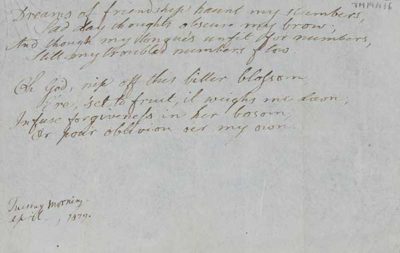 Dreams of friendship haunt my slumbers,
Sad day thoughts obscure my brow;
And though my tongue's unfit for numbers,
Still my troubled numbers flow

Oh God, nip off this bitter blossom
Ere, set to fruit, it weighs me down;
Infuse forgiveness in her bosom,
Or pour oblivion o'er my own.

Tuesday Morning.
April , 1879.